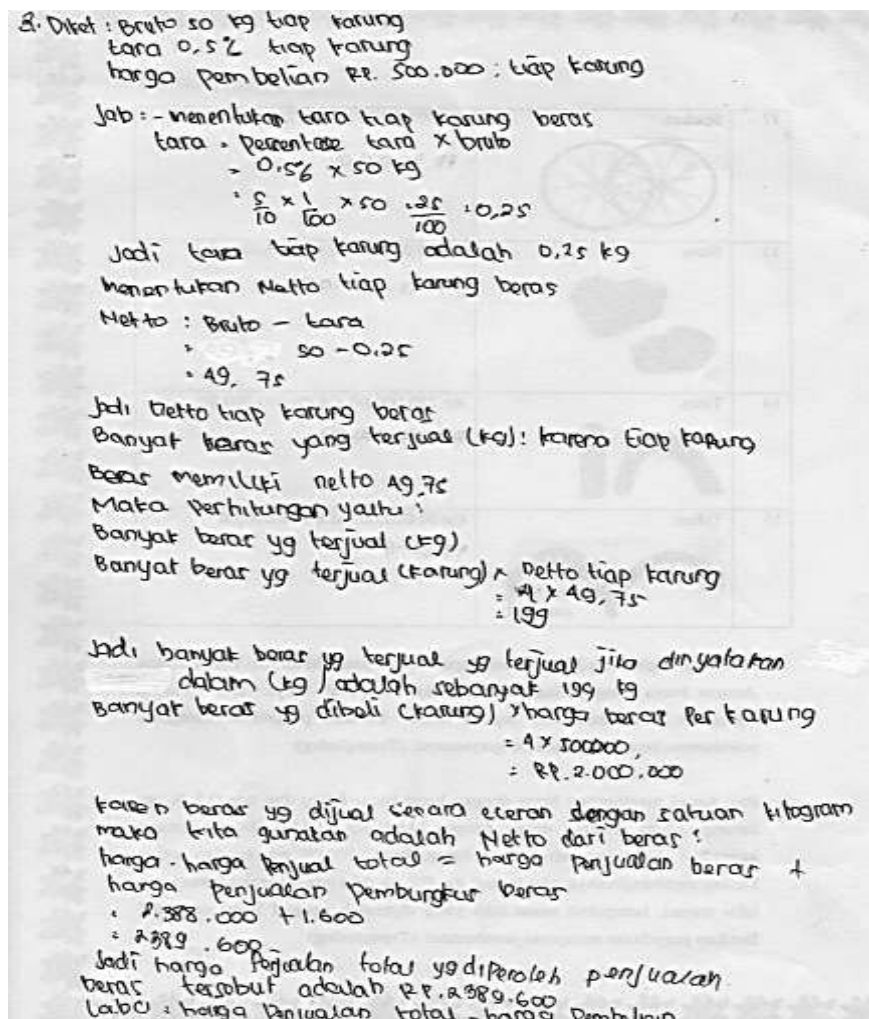 3. Diket : Bruto 50 kg tiap karung
tara 0,5% tiap karung
harga pembelian RP. 500.000; tiap karung
Jab : - menentukan tara tiap karung beras
tara = Persentase tara x bruto
= 0,5% x 50 kg
= 5/10 x 1/100 x 50 = 25/100 = 0,25
Jadi tara tiap karung adalah 0,25 kg
menentukan Netto tiap karung beras
Netto : Bruto - tara
= 50 - 0,25
= 49,75
Jadi Netto tiap karung beras
Banyak beras yang terjual (kg) : karena tiap karung
Beras memiliki netto 49,75
Maka Perhitungan yaitu :
Banyak beras yg terjual (kg)
Banyak beras yg terjual (karung) x Netto tiap karung
= 4 x 49,75
= 199
Jadi banyak beras yg terjual yg terjual jika dinyatakan
dalam (kg) adalah sebanyak 199 kg
Banyak beras yg dibeli (karung) x harga beras Per karung
= 4 x 500000,
= RP. 2.000.000
karen beras yg dijual secara eceran dengan satuan kilogram
maka kita gunakan adalah Netto dari beras :
harga - harga Penjual total = harga Penjualan beras +
harga Penjualan Pembungkus beras
= 2.388.000 + 1.600
= 2389.600
Jadi harga Penjualan total yg diperoleh penjualan
beras tersebut adalah RP. 2389.600
Laba : harga Penjualan total - harga Pembelian